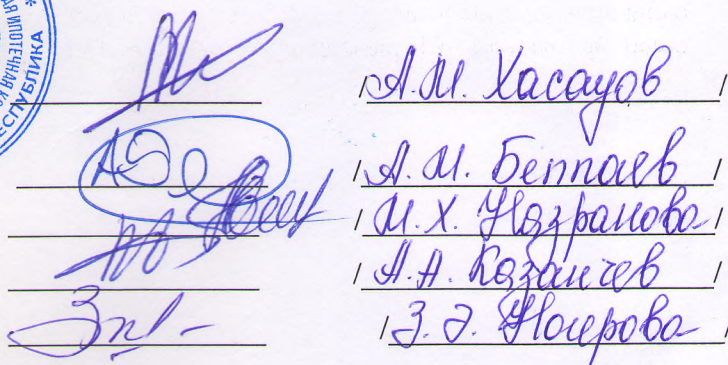 АЯ ИПОТЕЧНАЯ К
РЕСПУБЛИКА *
/А.М. Хасауов /
/А.М. Беппаев /
/М.Х. Назранова/
/А.А. Казанчев /
/З.Э. /